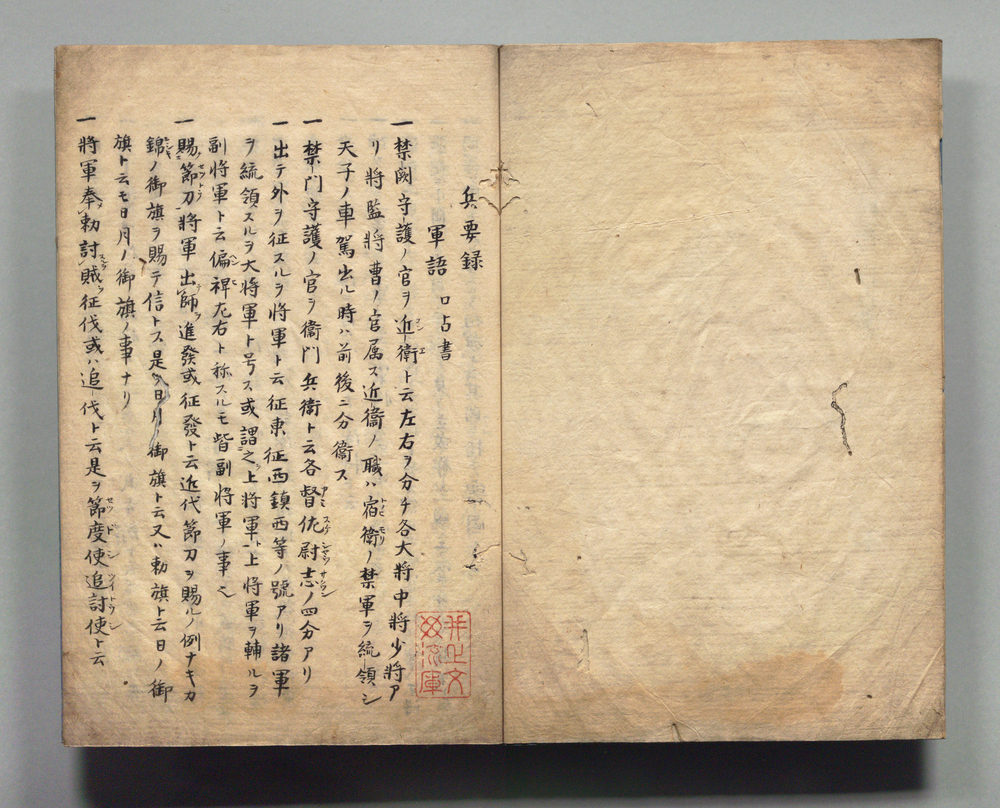 兵要録
軍語 口占書
一禁闕守護ノ官ヲ近衛ト云左右ヲ分チ各大将中将少将ア
リ将監将曹ノ官属ス近衛ノ職ハ宿衛ノ禁軍ヲ統領シ
天子ノ車駕出ル時ハ前後ニ分衛ス
一禁門守護ノ官ヲ衛門兵衛ト云各督佐尉志ノ四分アリ
一出テ外ヲ征スルヲ将軍ト云征東征西鎮西等ノ號アリ諸軍
ヲ統領スルヲ大将軍ト号ス或謂之上将軍ト上将軍ヲ輔ルヲ
副将軍ト云偏裨左右ト称スルモ皆副将軍ノ事也
一賜節刀将軍出師進發或征發ト云近代節刀ヲ賜ルノ例ナキカ
錦ノ御旗ヲ賜テ信トス是ヲ日月ノ御旗ト云又ハ勅旗ト云日ノ御
旗ト云モ日月ノ御旗ノ事ナリ
一将軍奉勅討賊征伐或ハ追伐ト云是ヲ節度使追討使ト云